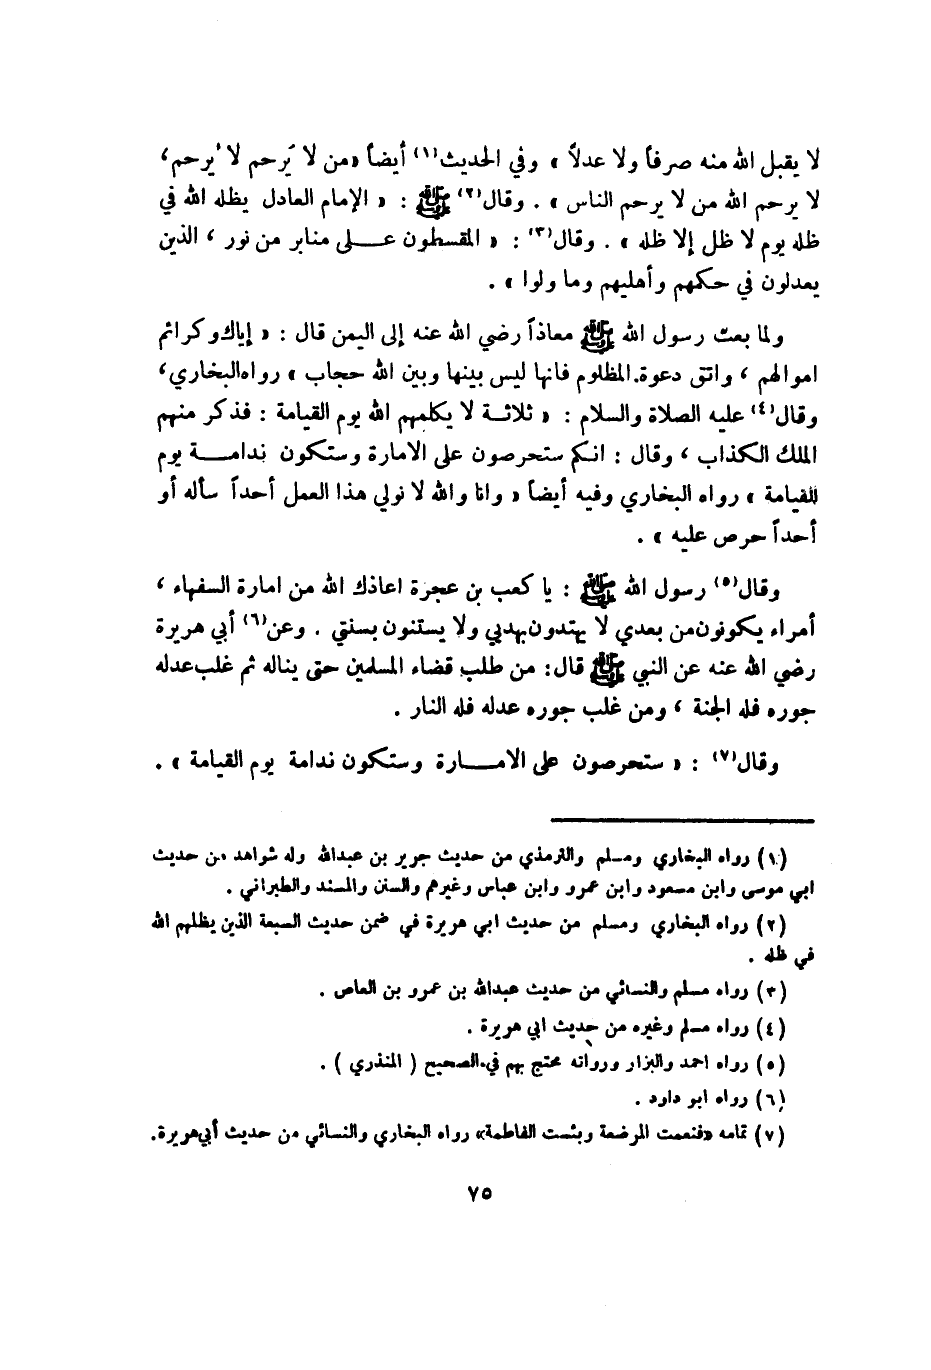 لا يقبل الله منه صرفاً ولا عدلاً » وفي الحديث(١) أيضاً «من لا يَرحم لا يُرحم ،
لا يرحم الله من لا يرحم الناس » . وقال(٢) ﷺ : « الإمام العادل يظله الله في
ظله يوم لا ظل إلا ظله » . وقال(٣) : « المقسطون عـــلى منابر من نور ، الذين
يعدلون في حكمهم وأهليهم وما ولوا » .
ولما بعث رسول الله ﷺ معاذاً رضي الله عنه إلى اليمن قال : « إياك وكرائم
اموالهم ، واتق دعوة المظلوم فانها ليس بينها وبين الله حجاب » رواه البخاري ،
وقال(٤) عليه الصلاة والسلام : « ثلاثـة لا يكلمهم الله يوم القيامة : فذكر منهم
الملك الكذاب ، وقال : انكم ستحرصون على الامارة وستكون ندامـــة يوم
القيامة » رواه البخاري وفيه أيضاً « وانا والله لا نولي هذا العمل أحداً سأله أو
أحداً حرص عليه » .
وقال(٥) رسول الله ﷺ : يا كعب بن عجرة اعاذك الله من امارة السفهاء ،
أمراء يكونون من بعدي لا يهتدون بهديي ولا يستنون بسنتي . وعن(٦) أبي هريرة
رضي الله عنه عن النبي ﷺ قال : من طلب قضاء المسلمين حتى يناله ثم غلب عدله
جوره فله الجنة ، ومن غلب جوره عدله فله النار .
وقال(٧) : « ستحرصون على الامـــارة وستكون ندامة يوم القيامة » .
(١) رواه البخاري ومسلم والترمذي من حديث جرير بن عبدالله وله شواهد من حديث
ابي موسى وابن مسعود وابن عمرو وابن عباس وغيرهم والسنن والمسند والطبراني .
(٢) رواه البخاري ومسلم من حديث ابي هريرة في ضمن حديث السبعة الذين يظلهم الله
في ظله .
(٣) رواه مسلم والنسائي من حديث عبدالله بن عمرو بن العاص .
(٤) رواه مسلم وغيره من حديث ابي هريرة .
(٥) رواه احمد والبزار ورواته محتج بهم في الصحيح ( المنذري ) .
(٦) رواه ابو داود .
(٧) تمامه «فنعمت المرضعة وبئست الفاطمة» رواه البخاري والنسائي من حديث أبي هريرة.
٧٥